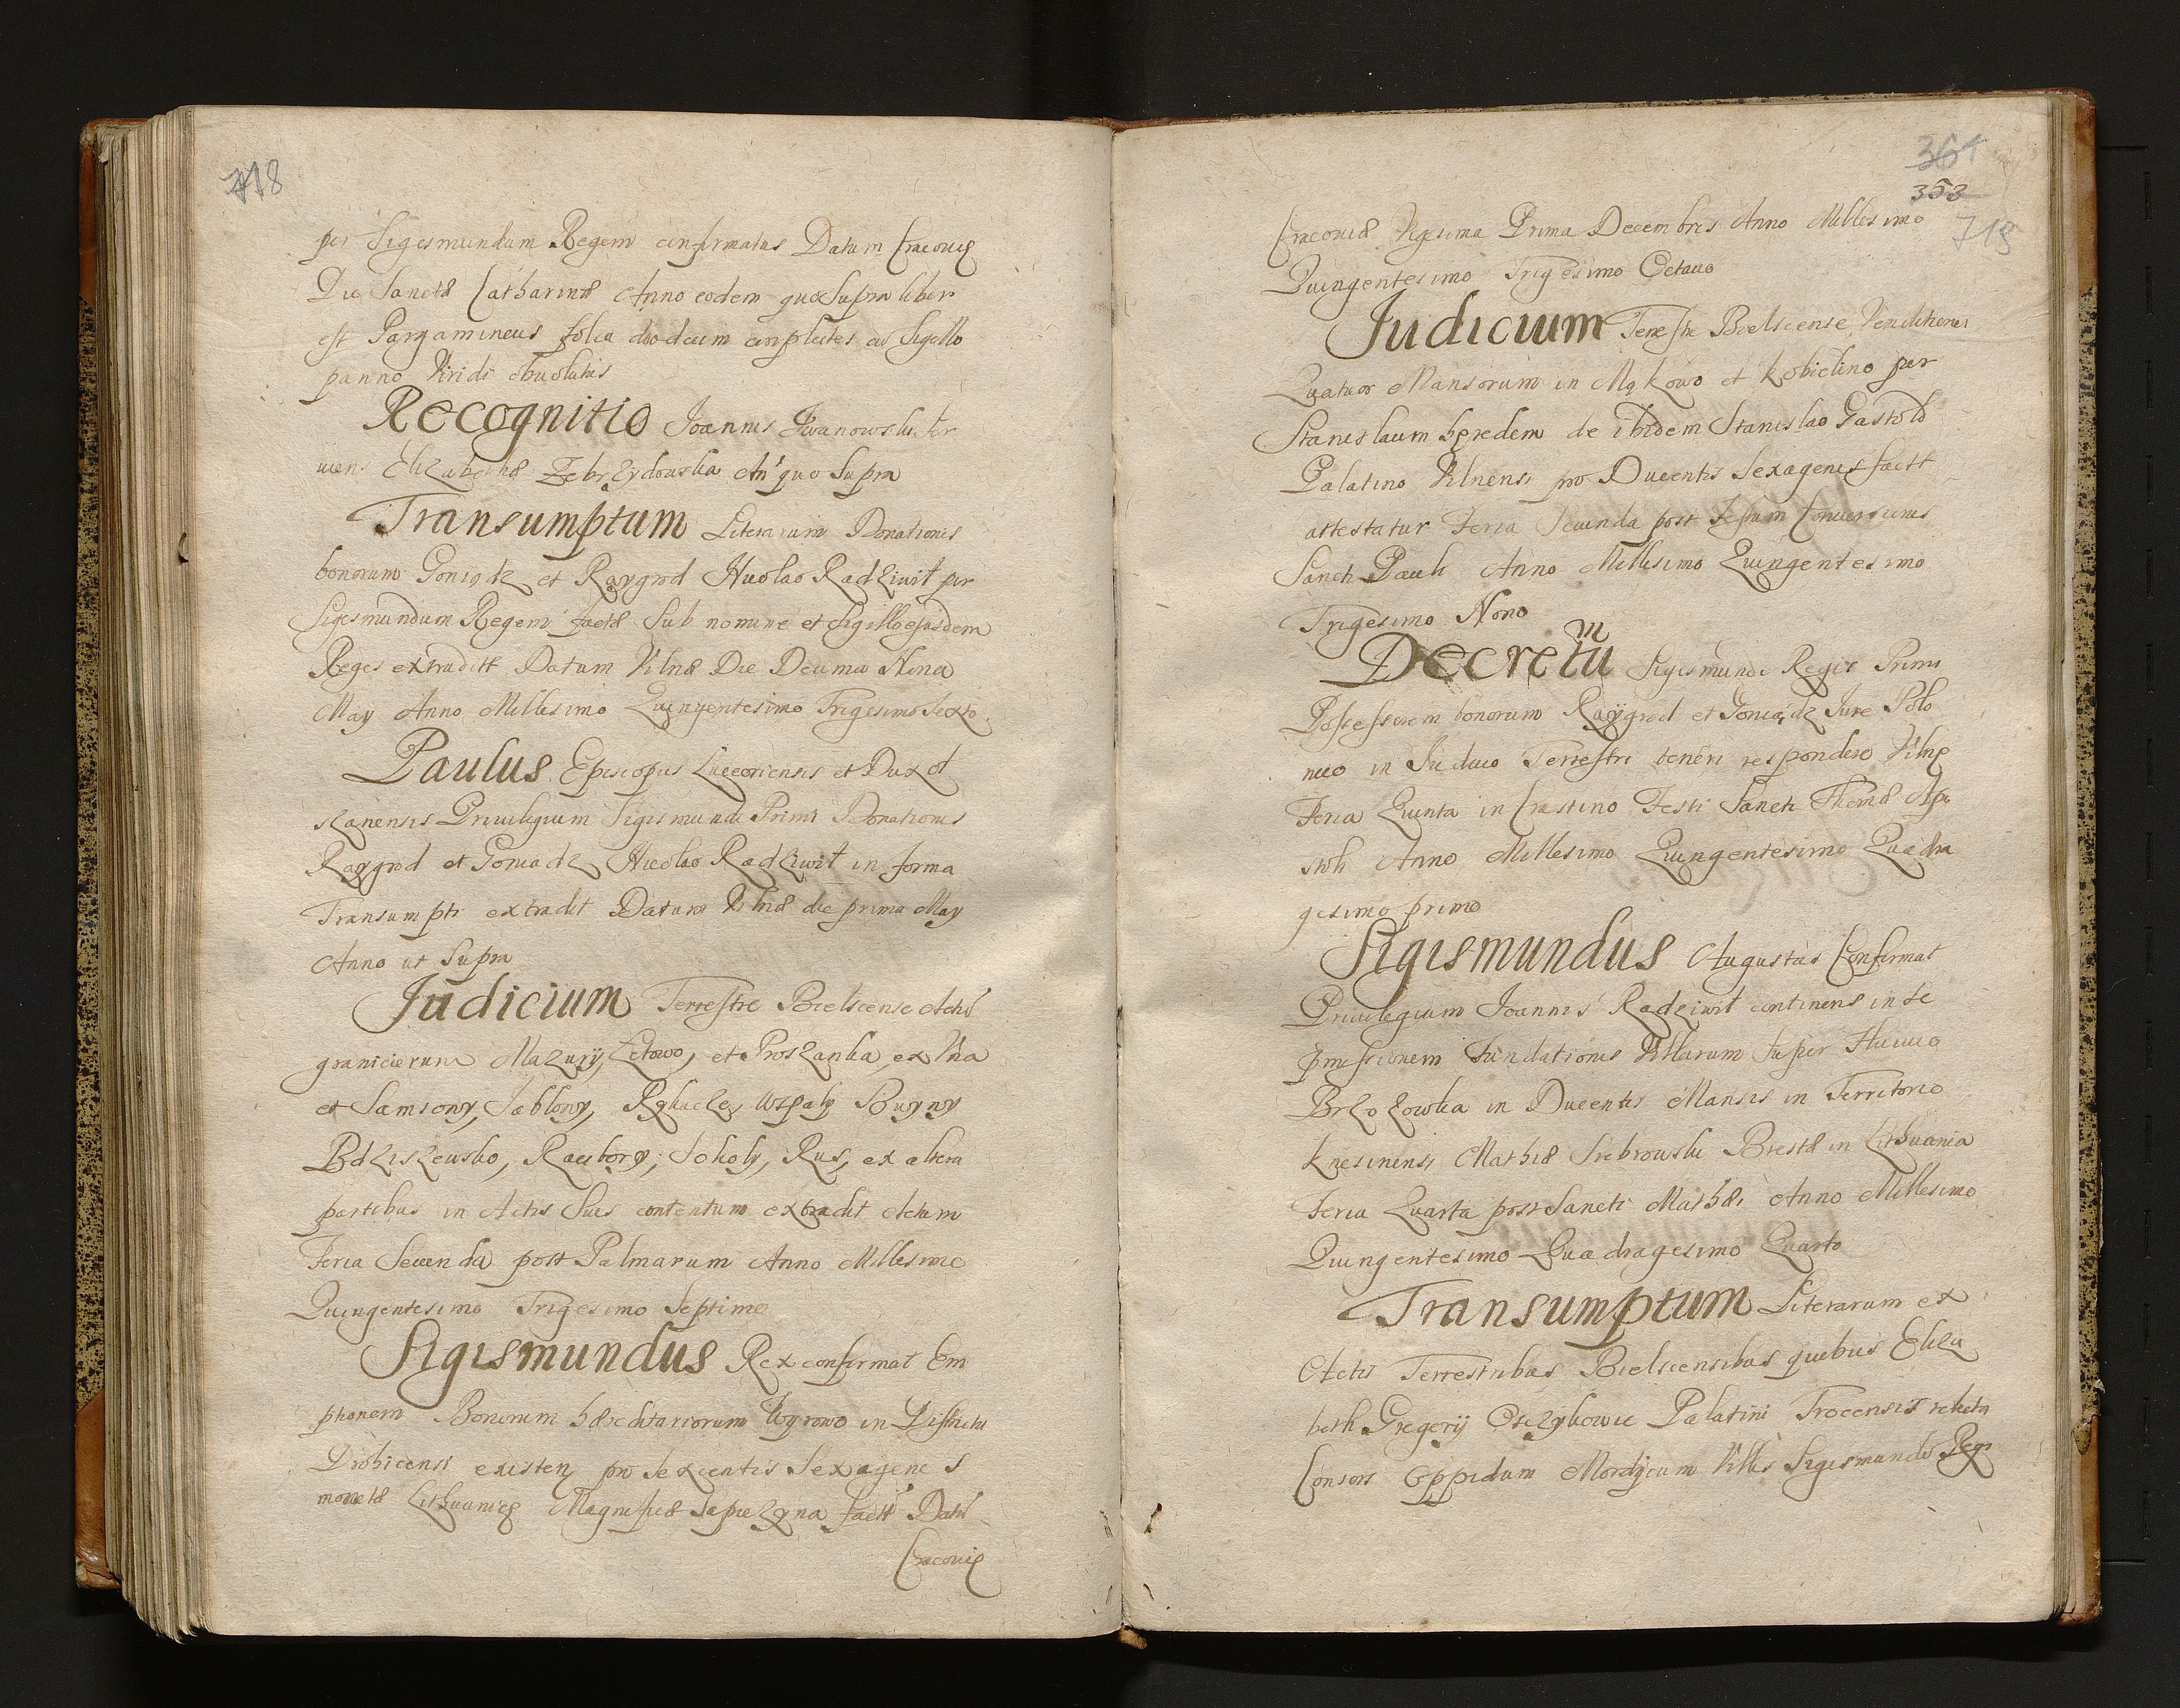 718
per Sigesmundum Regem confirmatus Datum Cracovię
Die Sanctæ Catharinæ Anno eodem quo Supra liber
est Pargamineus folia duodecim complectes cū Sigillo
panno Viridi obuolutus
Recognitio Joannis Iwanowski
Elizabethæ Zebrzydowska An' quo Supra
Transumptum Literarum Donationis
bonorum Goniądz et Raygrod Nicolao Radziwił per
Sigesmundum Regem factæ Sub nomine et Sigillo ejusdem
Reges extraditt Datum Vilnæ Die Decima Nona
May Anno Millesimo Quingentesimo Trigesimo Sexto
Paulus Episcopus Luceoriensis et Dux ol
szanensis Priuilegium Sigismundi Primi Donationis
Raygrod et Goniadz Nicolao Radziwił in forma
Transumpti extradit Datum Vilnæ die prima May
Anno ut Supra
Judicium Terrestre Bielscense Actū
granicierum Mazury, Zetowo, et Proszanka, ex Vna
et Samsony, Jabłony, Wspaly Buyny
Bdziszewsko, Racibory, Sokoly, Rus, ex altera
partibus in Actis Suis contentum extradit Actum
Feria Secunda post Palmarum Anno Millesimo
Quingentesimo Trigesimo Septimo
Sigismundus Rex confirmat Em
ptionem Bonorum hæreditariorum Wyrowo in Districtu
Drohicensi existen pro Sexcentis Sexagenis
monetæ Lithuanicę Magnificæ Sapiezyna factū Datū
Cracovię
361
353
719
Cracoviæ Vigesima Prima Decembris Anno Millesimo
Quingentesimo Trigesimo Octauo
Judicium Terestre Bielscense Venditionem
Quatuor Mansorum in Mąkowo et Kobielino per
Stanislaum hęredem de ibidem Stanislao Gastold
Palatino Vilnensi pro Ducentis Sexagenis factt
attestatur Feria Secunda post Festum Conuersionis
Sancti Pauli Anno Millesimo Quingentesimo
Trigesimo Nono
Decretum Sigismundi Regis Primi
Possessorem bonorum Raygrod et Goniądz Jure Polo
nico in Judicio Terrestri teneri respondere Vilnę
Feria Quinta in Crastino Festi Sancti Thomæ Apo
stoli Anno Millesimo Quingentesimo Quadra
gesimo primo
Sigismundus Augustus Confirmat
Priuilegium Joannis Radziwił continens in se
pmissionem Fundationis Villarum Super Fluuio
Brzozowka in Ducentis Mansis in Territorio
Knesinensi Mathiæ Srebrowski Brestæ in Lithuania
Feria Quarta post Sancti Mathæi Anno Millesimo
Quingentesimo Quadragesimo Quarto
Transumptum Literarum ex
Actis Terrestribus Bielscensibus quibus Eliza
beth Gregorij Osczykowic Palatini Trocensis relicta
Consors Oppidum Mordy cum Villis Sigismundo Regi